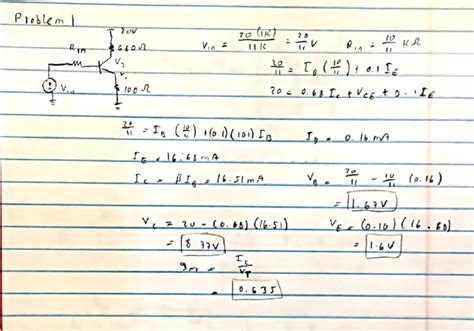 Problem 1
20V
R_in 660Ω V_in = 20(1K)/11K = 20/11 V R_in = 10/11 KΩ
V_2
20/11 = I_B (10/11) + 0.1 I_E
V_in 100Ω 20 = 0.68 I_c + V_CE + 0.1 I_E
20/11 = I_B (10/11) + (0.1)(101) I_B I_B = 0.16 mA
I_E = 16.68 mA
I_c = β I_B = 16.51 mA V_B = 20/11 - 10/11 (0.16)
= 1.67V
V_c = 20 - (0.68)(16.51) V_E = (0.10)(16.68)
= 8.77V = 1.6V
g_m = I_c/V_T
= 0.635